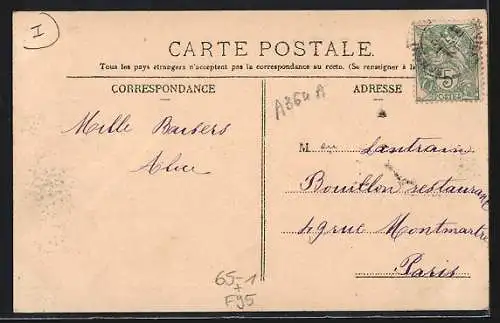 I
CARTE POSTALE.
Tous les pays étrangers n'acceptent pas la correspondance au recto. (Se renseigner à la
CORRESPONDANCE
ADRESSE
A364A
5
POSTES
Mille Baisers
Alice
M. Lantrain
Bouillon restaurant
49 rue Montmartre
Paris
65-1
+
F95